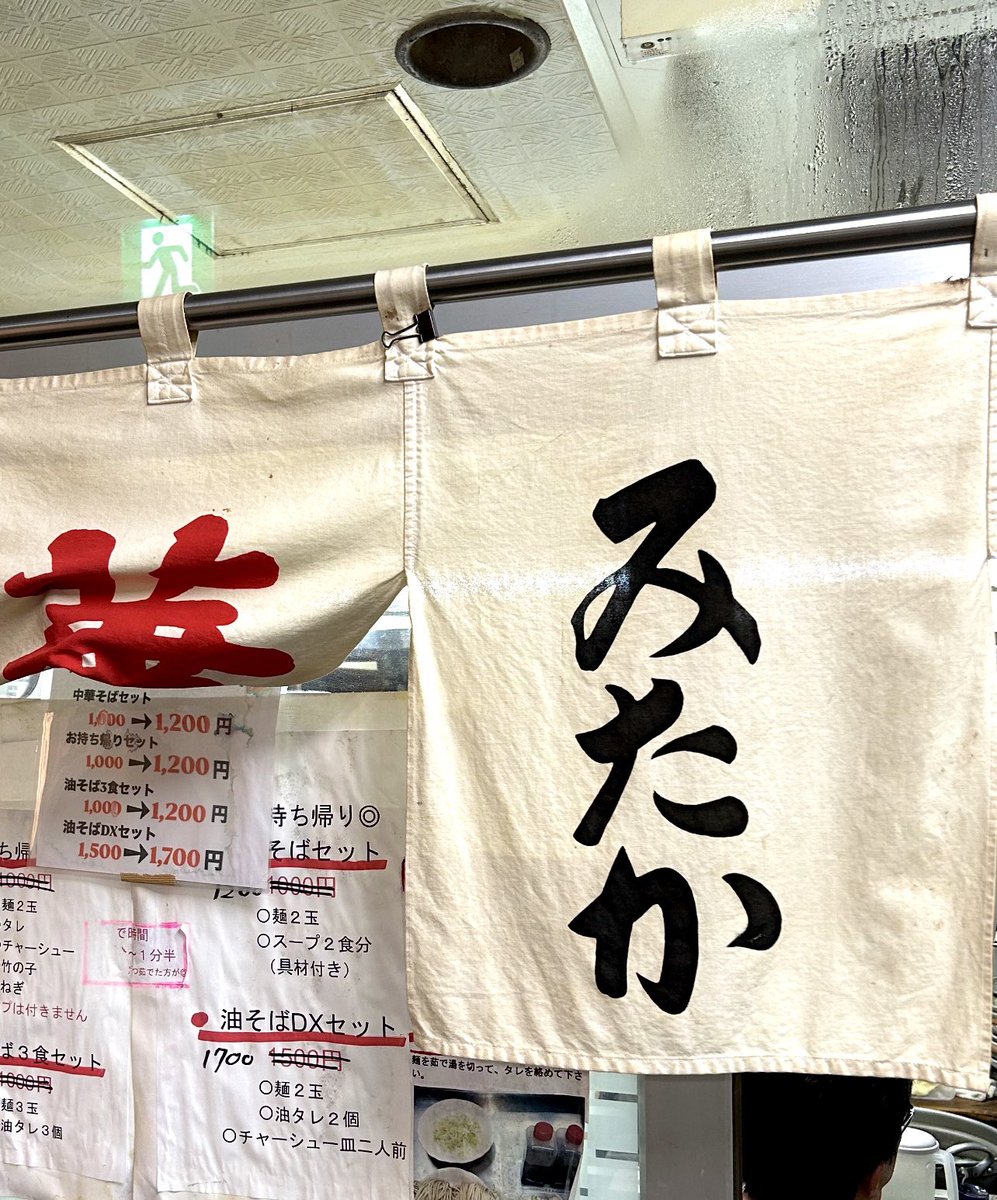 みたか
中華そばセット
1,000→1,200円
お持ち帰りセット
1,000→1,200円
油そば3食セット
1,000→1,200円
油そばDXセット
1,500→1,700円
ち帰
1000円
麺２玉
タレ
チャーシュー
竹の子
ねぎ
プは付きません
で時間
～１分半
つ茹でた方が◎
ば３食セット
1000円
麺３玉
油タレ３個
持ち帰り◎
そばセット
1200 1000円
○麺２玉
○スープ２食分
（具材付き）
油そばDXセット
1700 1500円
○麺２玉
○油タレ２個
○チャーシュー皿二人前
麺を茹で湯を切って、タレを絡めて下さ
い。